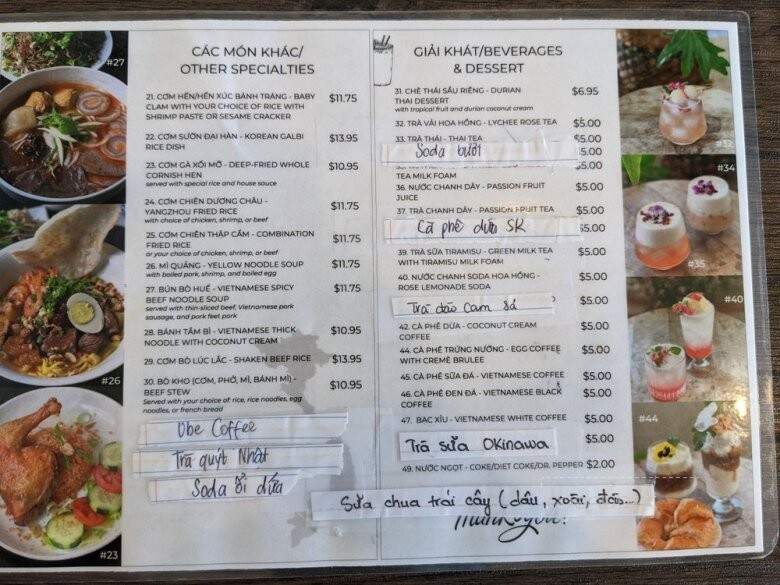 #27
#26
#23
CÁC MÓN KHÁC/
OTHER SPECIALTIES
21. CƠM HẾN/HẾN XÚC BÁNH TRÁNG - BABY
CLAM WITH YOUR CHOICE OF RICE WITH $11.75
SHRIMP PASTE OR SESAME CRACKER
22. CƠM SƯỜN ĐẠI HÀN - KOREAN GALBI $13.95
RICE DISH
23. CƠM GÀ XỐI MỠ - DEEP-FRIED WHOLE $10.95
CORNISH HEN
served with special rice and house sauce
24. CƠM CHIÊN DƯƠNG CHÂU -
YANGZHOU FRIED RICE $11.75
with choice of chicken, shrimp, or beef
25. CƠM CHIÊN THẬP CẨM - COMBINATION
FRIED RICE $11.75
or your choice of chicken, shrimp, or beef
26. MÌ QUẢNG - YELLOW NOODLE SOUP $11.75
with boiled pork, shrimp, and boiled egg
27. BÚN BÒ HUẾ - VIETNAMESE SPICY
BEEF NOODLE SOUP $11.75
served with thin-sliced beef, Vietnamese pork
sausage, and pork feet pork
28. BÁNH TẰM BÌ - VIETNAMESE THICK $10.95
NOODLE WITH COCONUT CREAM
29. CƠM BÒ LÚC LẮC - SHAKEN BEEF RICE $13.95
30. BÒ KHO (CƠM, PHỞ, MÌ, BÁNH MÌ) -
BEEF STEW $10.95
Served with your choice of rice, rice noodles, egg
noodles, or french bread
Ube Coffee
Trà quýt Nhật
Soda ổi dứa
GIẢI KHÁT/BEVERAGES
& DESSERT
31. CHÈ THÁI SẦU RIÊNG - DURIAN $6.95
THAI DESSERT
with tropical fruit and durian coconut cream
32. TRÀ VẢI HOA HỒNG - LYCHEE ROSE TEA $5.00
33. TRÀ THÁI - THAI TEA $5.00
Soda bưởi 5.00
TEA MILK FOAM $5.00
36. NƯỚC CHANH DÂY - PASSION FRUIT $5.00
JUICE
37. TRÀ CHANH DÂY - PASSION FRUIT TEA $5.00
Cà phê dừa SR $5.00
39. TRÀ SỮA TIRAMISU - GREEN MILK TEA $5.00
WITH TIRAMISU MILK FOAM
40. NƯỚC CHANH SODA HOA HỒNG - $5.00
ROSE LEMONADE SODA
Trà đào cam sả $5.00
42. CÀ PHÊ DỪA - COCONUT CREAM $5.00
COFFEE
44. CÀ PHÊ TRỨNG NƯỚNG - EGG COFFEE $5.00
WITH CREMÈ BRULEE
45. CÀ PHÊ SỮA ĐÁ - VIETNAMESE COFFEE $5.00
46. CÀ PHÊ ĐEN ĐÁ - VIETNAMESE BLACK $5.00
COFFEE
47. BẠC XỈU - VIETNAMESE WHITE COFFEE $5.00
Trà sữa Okinawa $5.00
49. NƯỚC NGỌT - COKE/DIET COKE/DR. PEPPER $2.00
Sữa chua trái cây (dâu, xoài, đào...)
#32
#34
#40
#44